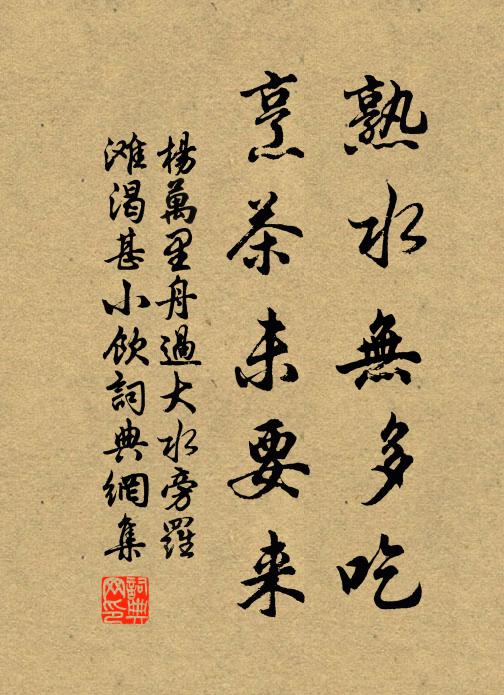 熟水無多吃
烹茶未要来
楊萬里舟過大水旁羅
滩渴甚小飲詞典網集
詞典
网印